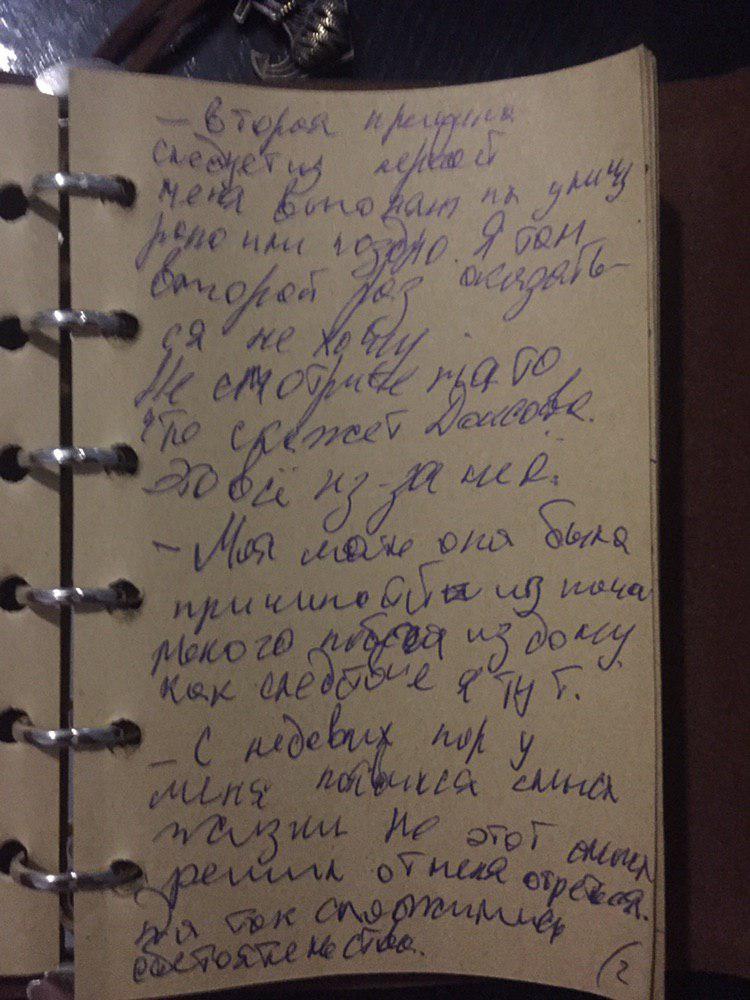 - Вторая причина
следует из первой
меня выгонят на улицу
рано или поздно. Я там
второй раз оказать-
ся не хочу.
Не смотрите на то
что скажет
это всё из-за неё.
- Моя она была
причиной из
моего побега из дому
как следствие я тут.
- С недавних пор у
меня появился смысл
жизни но этот смысл
решил от меня отречься.
так сложились
обстоятельства.
(2